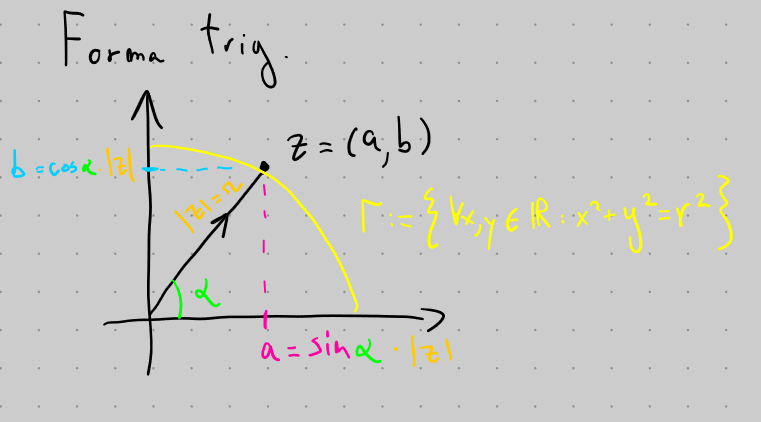 Forma trig.
z = (a, b)
b = cos α · |z|
|z| = r
Γ := { ∀x, y ∈ ℝ : x² + y² = r² }
α
a = sin α · |z|